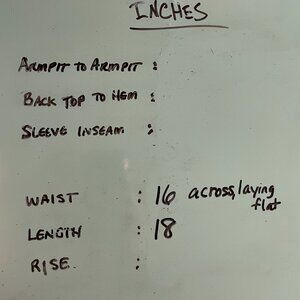 INCHES
ARMPIT TO ARMPIT :
BACK TOP TO HEM :
SLEEVE INSEAM :
WAIST : 16 across, laying flat
LENGTH : 18
RISE :